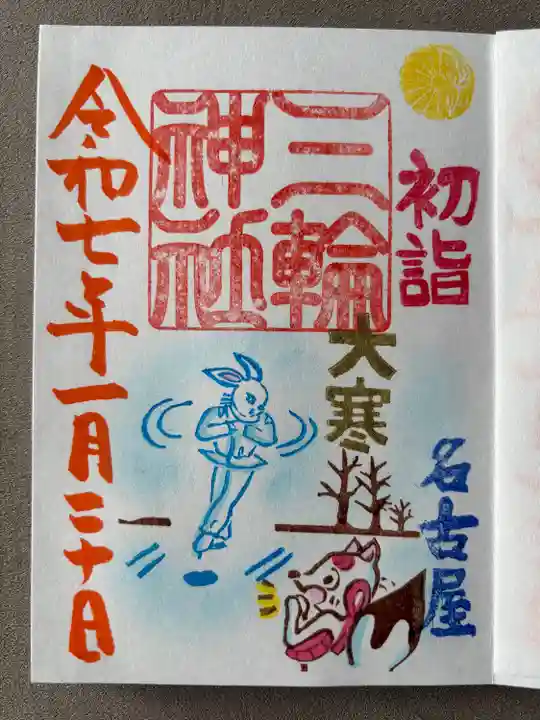 初詣
三輪
神社
大寒
名古屋
令和七年一月二十日